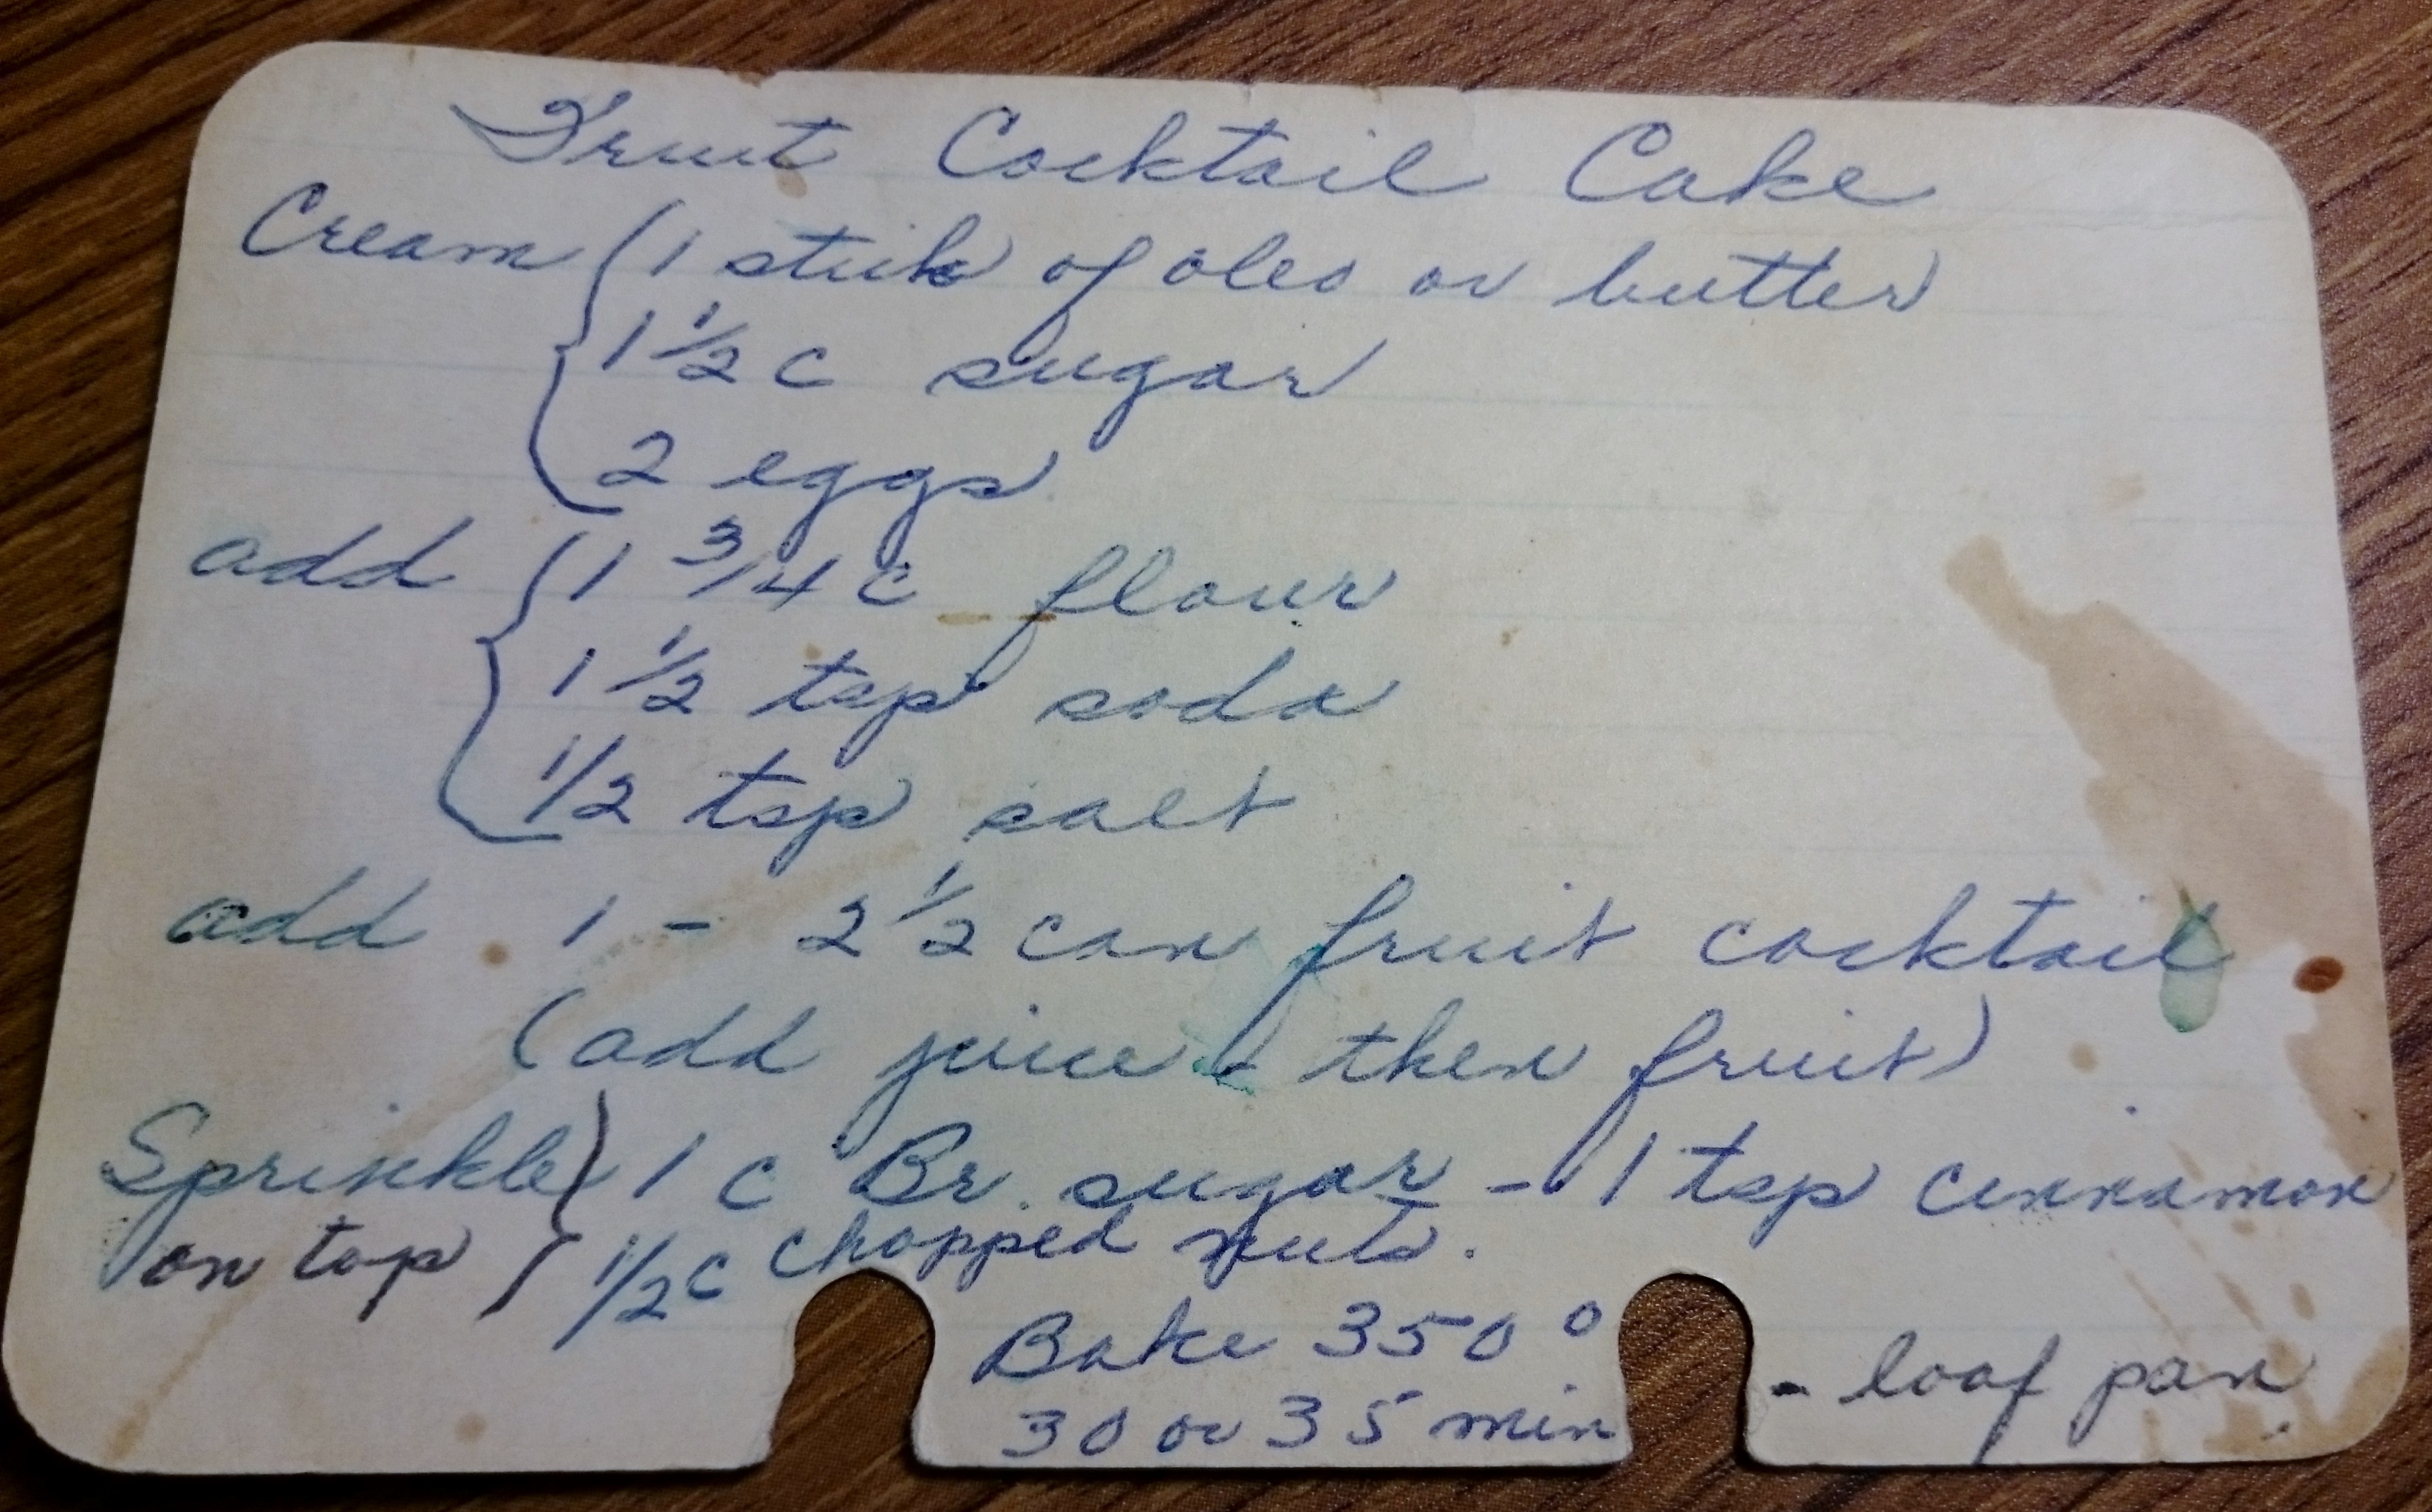 Fruit Cocktail Cake
Cream { 1 stick of oleo or butter
1 1/2 c sugar
2 eggs
add { 1 3/4 c flour
1 1/2 tsp soda
1/2 tsp salt
add 1 - 2 1/2 can fruit cocktail
(add juice & then fruit)
Sprinkle } 1 c Br. sugar - 1 tsp cinnamon
on top } 1/2 c chopped nuts.
Bake 350°
30 or 35 min - loaf pan